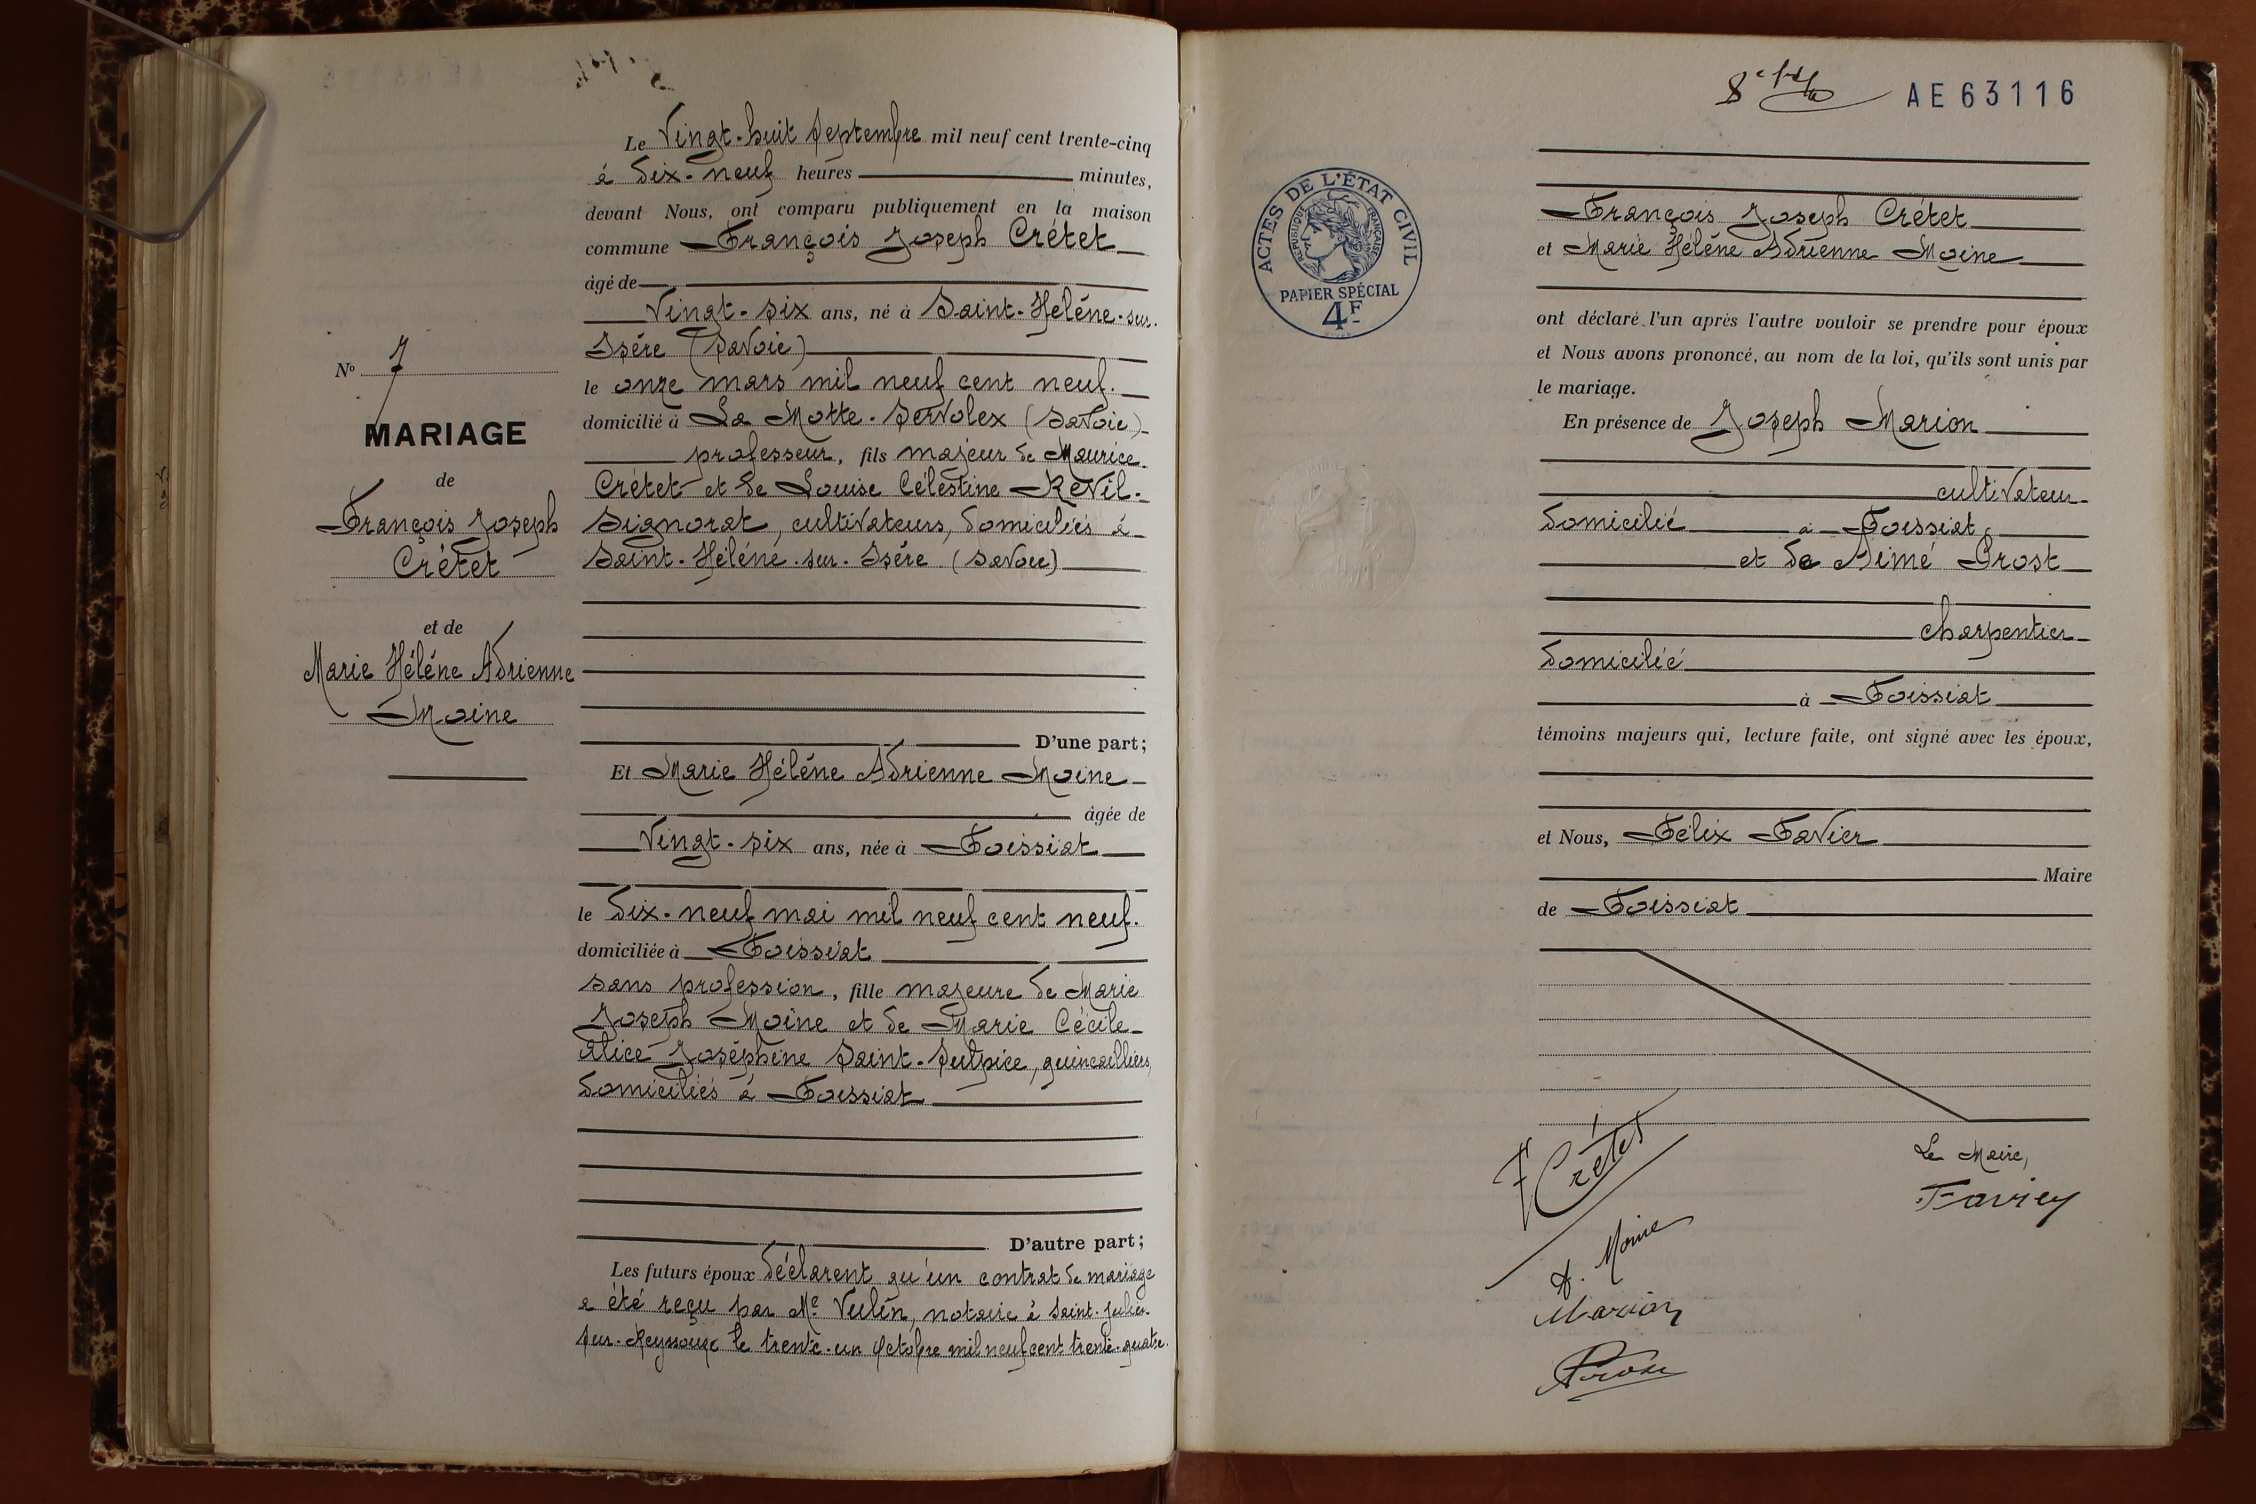 Le Vingt-huit Septembre mil neuf cent trente-cinq
à dix-neuf heures minutes,
devant Nous, ont comparu publiquement en la maison
commune François Joseph Crétet
âgé de
Vingt-six ans, né à Saint-Hélène-sur-
Isère (Savoie)
le onze mars mil neuf cent neuf.
domicilié à La Motte-Servolex (Savoie)
professeur, fils majeur de Maurice
Crétet et de Louise Célestine Revil-
Signorat, cultivateurs, domiciliés à
Saint-Hélène-sur-Isère (Savoie)
D'une part;
Et Marie Hélène Adrienne Moine
âgée de
Vingt-six ans, née à Foissiat
le dix-neuf mai mil neuf cent neuf.
domiciliée à Foissiat
sans profession, fille majeure de Marie
Joseph Moine et de Marie Cécile
Alice Joséphine Saint-Sulpice, quincailliers,
domiciliés à Foissiat
D'autre part;
Les futurs époux déclarent qu'un contrat de mariage
a été reçu par Me Vulin, notaire à Saint-Julien-
sur-Reyssouze le trente-un Octobre mil neuf cent trente-quatre.
No 7
MARIAGE
de
François Joseph
Crétet
et de
Marie Hélène Adrienne
Moine
AE63116
ACTES DE L'ÉTAT CIVIL
RÉPUBLIQUE FRANÇAISE
PAPIER SPÉCIAL
4F
François Joseph Crétet
et Marie Hélène Adrienne Moine
ont déclaré l'un après l'autre vouloir se prendre pour époux
et Nous avons prononcé, au nom de la loi, qu'ils sont unis par
le mariage.
En présence de Joseph Marion
cultivateur
domicilié à Foissiat
et de Aimé Prost
charpentier
domicilié
à Foissiat
témoins majeurs qui, lecture faite, ont signé avec les époux,
et Nous, Félix Favier
Maire
de Foissiat
F Crétet
A. Moine
Marion
Prost
Le Maire,
Favier